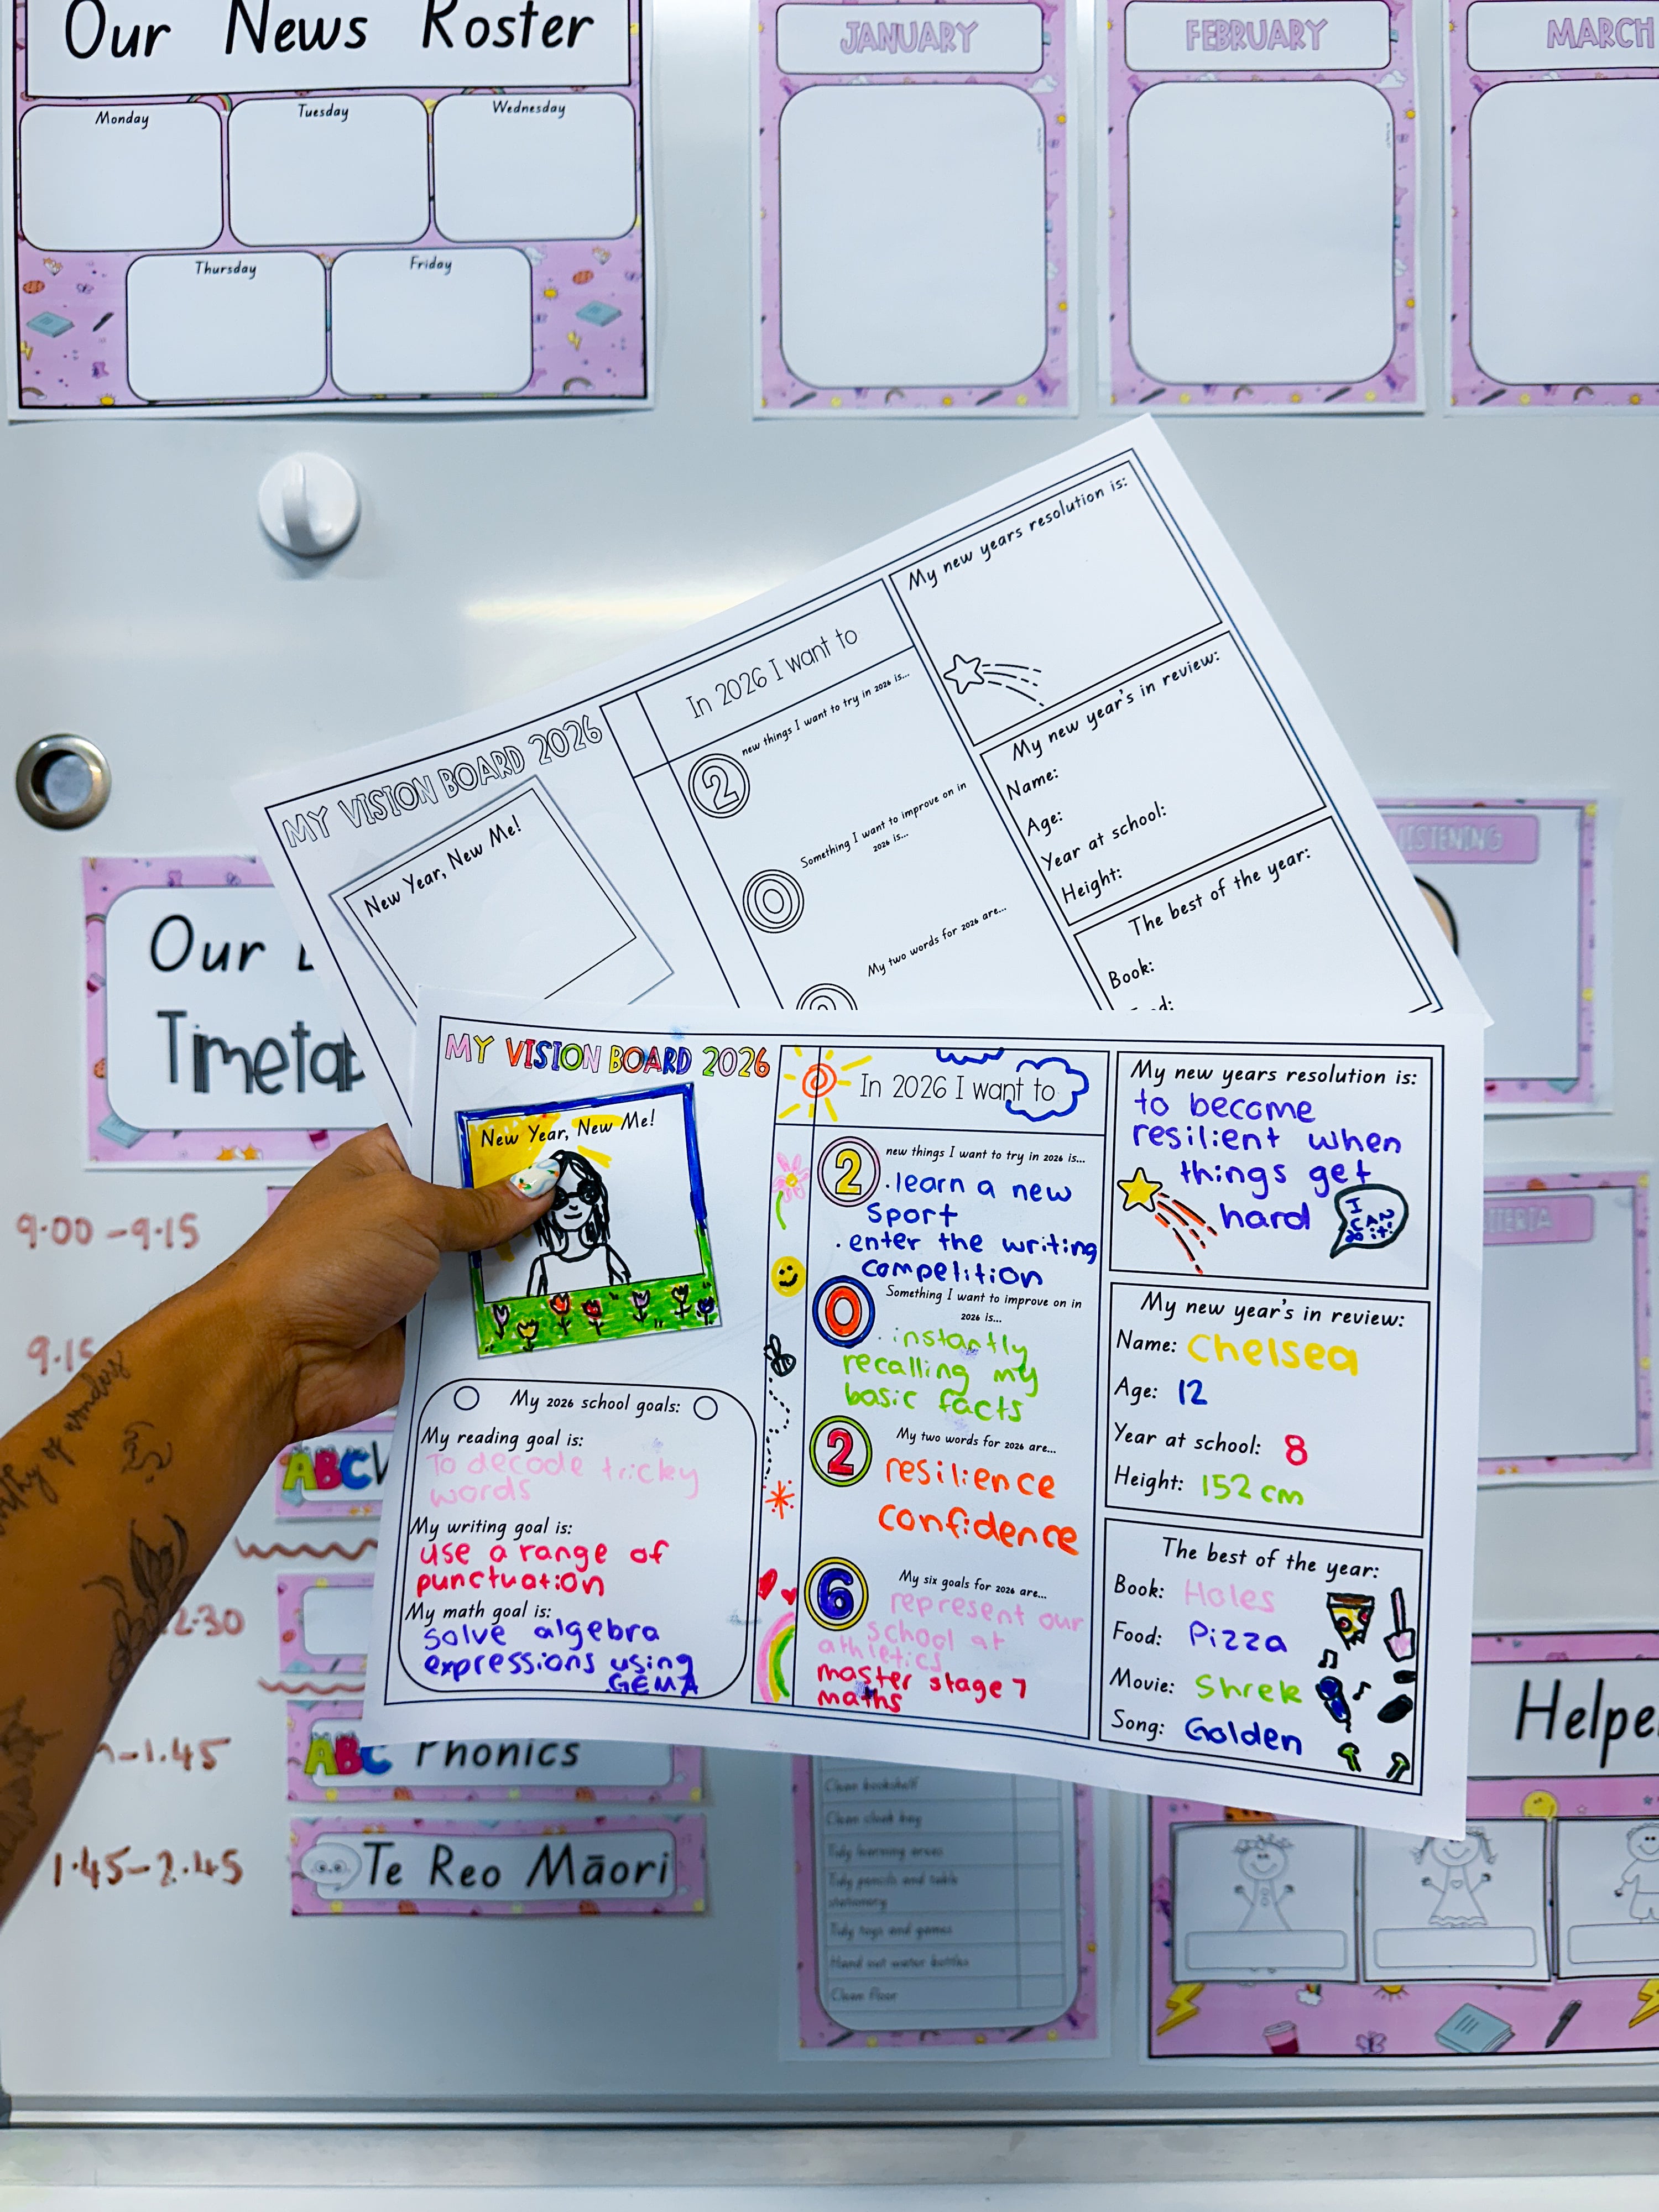 Our News Roster
Monday
Tuesday
Wednesday
Thursday
Friday
JANUARY
FEBRUARY
MARCH
MY VISION BOARD 2026
New Year, New Me!
In 2026 I want to
2
new things I want to try in 2026 is...
0
Something I want to improve on in
2026 is...
My two words for 2026 are...
My new years resolution is:
My new year's in review:
Name:
Age:
Year at school:
Height:
The best of the year:
Book:
LISTENING
Our
9.00-9.15
9.15
2.30
-1.45
1.45-2.45
ABC
ABC Phonics
Te Reo Māori
MY VISION BOARD 2026
New Year, New Me!
My 2026 school goals:
My reading goal is:
To decode tricky
words
My writing goal is:
use a range of
punctuation
My math goal is:
solve algebra
expressions using
GEMA
In 2026 I want to
2
new things I want to try in 2026 is...
. learn a new
sport
. enter the writing
competition
0
Something I want to improve on in
2026 is...
. instantly
recalling my
basic facts
2
My two words for 2026 are...
resilience
confidence
6
My six goals for 2026 are...
represent our
school at
athletics
master stage 7
maths
My new years resolution is:
to become
resilient when
things get
hard
I
CAN
do it!
My new year's in review:
Name: Chelsea
Age: 12
Year at school: 8
Height: 152 cm
The best of the year:
Book: Holes
Food: Pizza
Movie: Shrek
Song: Golden
Clean bookshelf
Clean cloak bay
Tidy learning areas
Tidy pencils and table
stationery
Tidy toys and games
Hand out water bottles
Clean floor